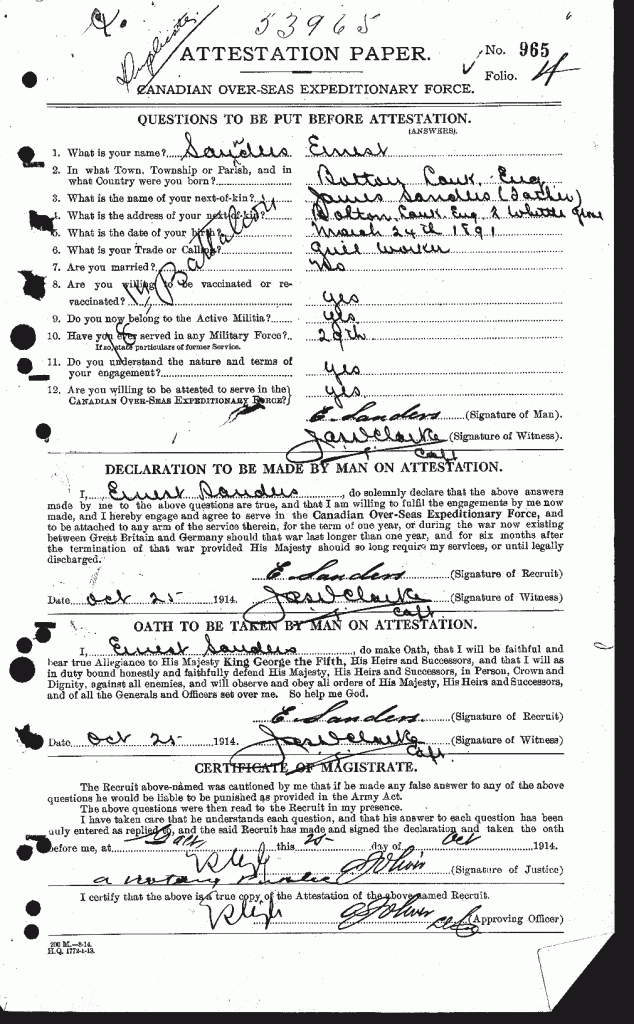 53965
Duplicate
ATTESTATION PAPER.
No. 965
Folio. 4
CANADIAN OVER-SEAS EXPEDITIONARY FORCE.
QUESTIONS TO BE PUT BEFORE ATTESTATION.
(ANSWERS).
1. What is your name? Sanders Ernest
2. In what Town, Township or Parish, and in
what Country were you born? Bolton Lank. Eng
3. What is the name of your next-of-kin? James Sanders (Father)
4. What is the address of your next-of-kin? Bolton Lank. Eng. 2 Whittle
5. What is the date of your birth? March 24th 1891
6. What is your Trade or Calling? Worker
7. Are you married? No
8. Are you willing to be vaccinated or re-
vaccinated? yes
9. Do you now belong to the Active Militia? yes
10. Have you ever served in any Military Force? 29th
If so, state particulars of former Service.
11. Do you understand the nature and terms of
your engagement? yes
12. Are you willing to be attested to serve in the
CANADIAN OVER-SEAS EXPEDITIONARY FORCE? yes
18th Battalion
E. Sanders (Signature of Man).
Jas W Clarke (Signature of Witness).
Capt
DECLARATION TO BE MADE BY MAN ON ATTESTATION.
I, Ernest Sanders, do solemnly declare that the above answers
made by me to the above questions are true, and that I am willing to fulfil the engagements by me now
made, and I hereby engage and agree to serve in the Canadian Over-Seas Expeditionary Force, and
to be attached to any arm of the service therein, for the term of one year, or during the war now existing
between Great Britain and Germany should that war last longer than one year, and for six months after
the termination of that war provided His Majesty should so long require my services, or until legally
discharged.
E Sanders (Signature of Recruit)
Date Oct 25 1914. Jas W Clarke (Signature of Witness)
Capt
OATH TO BE TAKEN BY MAN ON ATTESTATION.
I, Ernest Sanders, do make Oath, that I will be faithful and
bear true Allegiance to His Majesty King George the Fifth, His Heirs and Successors, and that I will as
in duty bound honestly and faithfully defend His Majesty, His Heirs and Successors, in Person, Crown and
Dignity, against all enemies, and will observe and obey all orders of His Majesty, His Heirs and Successors,
and of all the Generals and Officers set over me. So help me God.
E. Sanders (Signature of Recruit)
Date Oct 25 1914. Jas W Clarke (Signature of Witness)
Capt
CERTIFICATE OF MAGISTRATE.
The Recruit above-named was cautioned by me that if he made any false answer to any of the above
questions he would be liable to be punished as provided in the Army Act.
The above questions were then read to the Recruit in my presence.
I have taken care that he understands each question, and that his answer to each question has been
duly entered as replied to, and the said Recruit has made and signed the declaration and taken the oath
before me, at Galt this 25 day of Oct 1914.
(Signature of Justice)
a Notary Public
I certify that the above is a true copy of the Attestation of the above-named Recruit.
(Approving Officer)
200 M.—8-14.
H.Q. 1772-1-13.